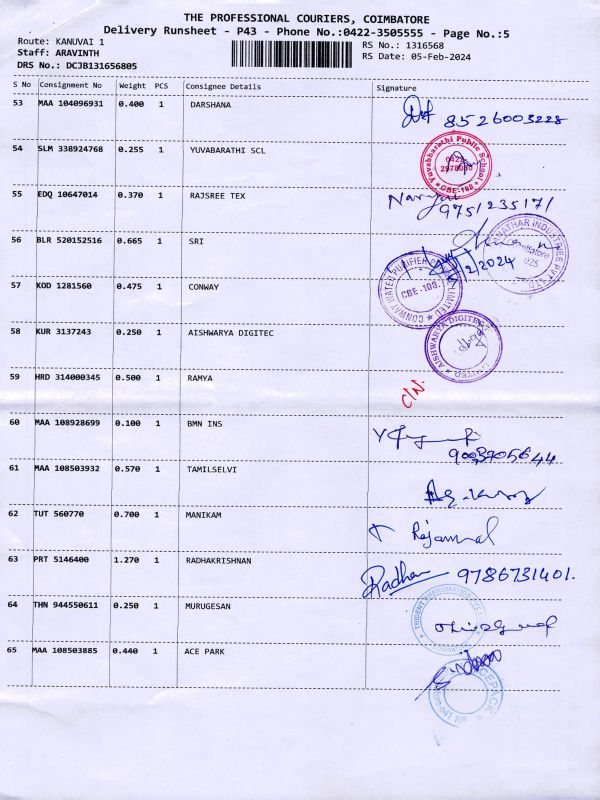 THE PROFESSIONAL COURIERS, COIMBATORE
Delivery Runsheet - P43 - Phone No.:0422-3505555 - Page No.:5
Route: KANUVAI 1
Staff: ARAVINTH
DRS No.: DCJB131656805
RS No.: 1316568
RS Date: 05-Feb-2024
S No Consignment No Weight PCS Consignee Details Signature
53 MAA 104096931 0.400 1 DARSHANA 8526003228
54 SLM 338924768 0.255 1 YUVABARATHI SCL
Yuvabharathi Public School
CBE-108
55 EDQ 10647014 0.370 1 RAJSREE TEX
9751235171
56 BLR 520152516 0.665 1 SRI
/2/2024
57 KOD 1281560 0.475 1 CONWAY
CONWAY WATER PURIFIER LIMITED
CBE -108.
58 KUR 3137243 0.250 1 AISHWARYA DIGITEC
AISHWARYA DIGITEC
59 HRD 314000345 0.500 1 RAMYA
C/N.
60 MAA 108928699 0.100 1 BMN INS
61 MAA 108503932 0.570 1 TAMILSELVI
62 TUT 560770 0.700 1 MANIKAM
63 PRT 5146400 1.270 1 RADHAKRISHNAN
Radha 9786731401.
64 THN 944550611 0.250 1 MURUGESAN
65 MAA 108503885 0.440 1 ACE PARK